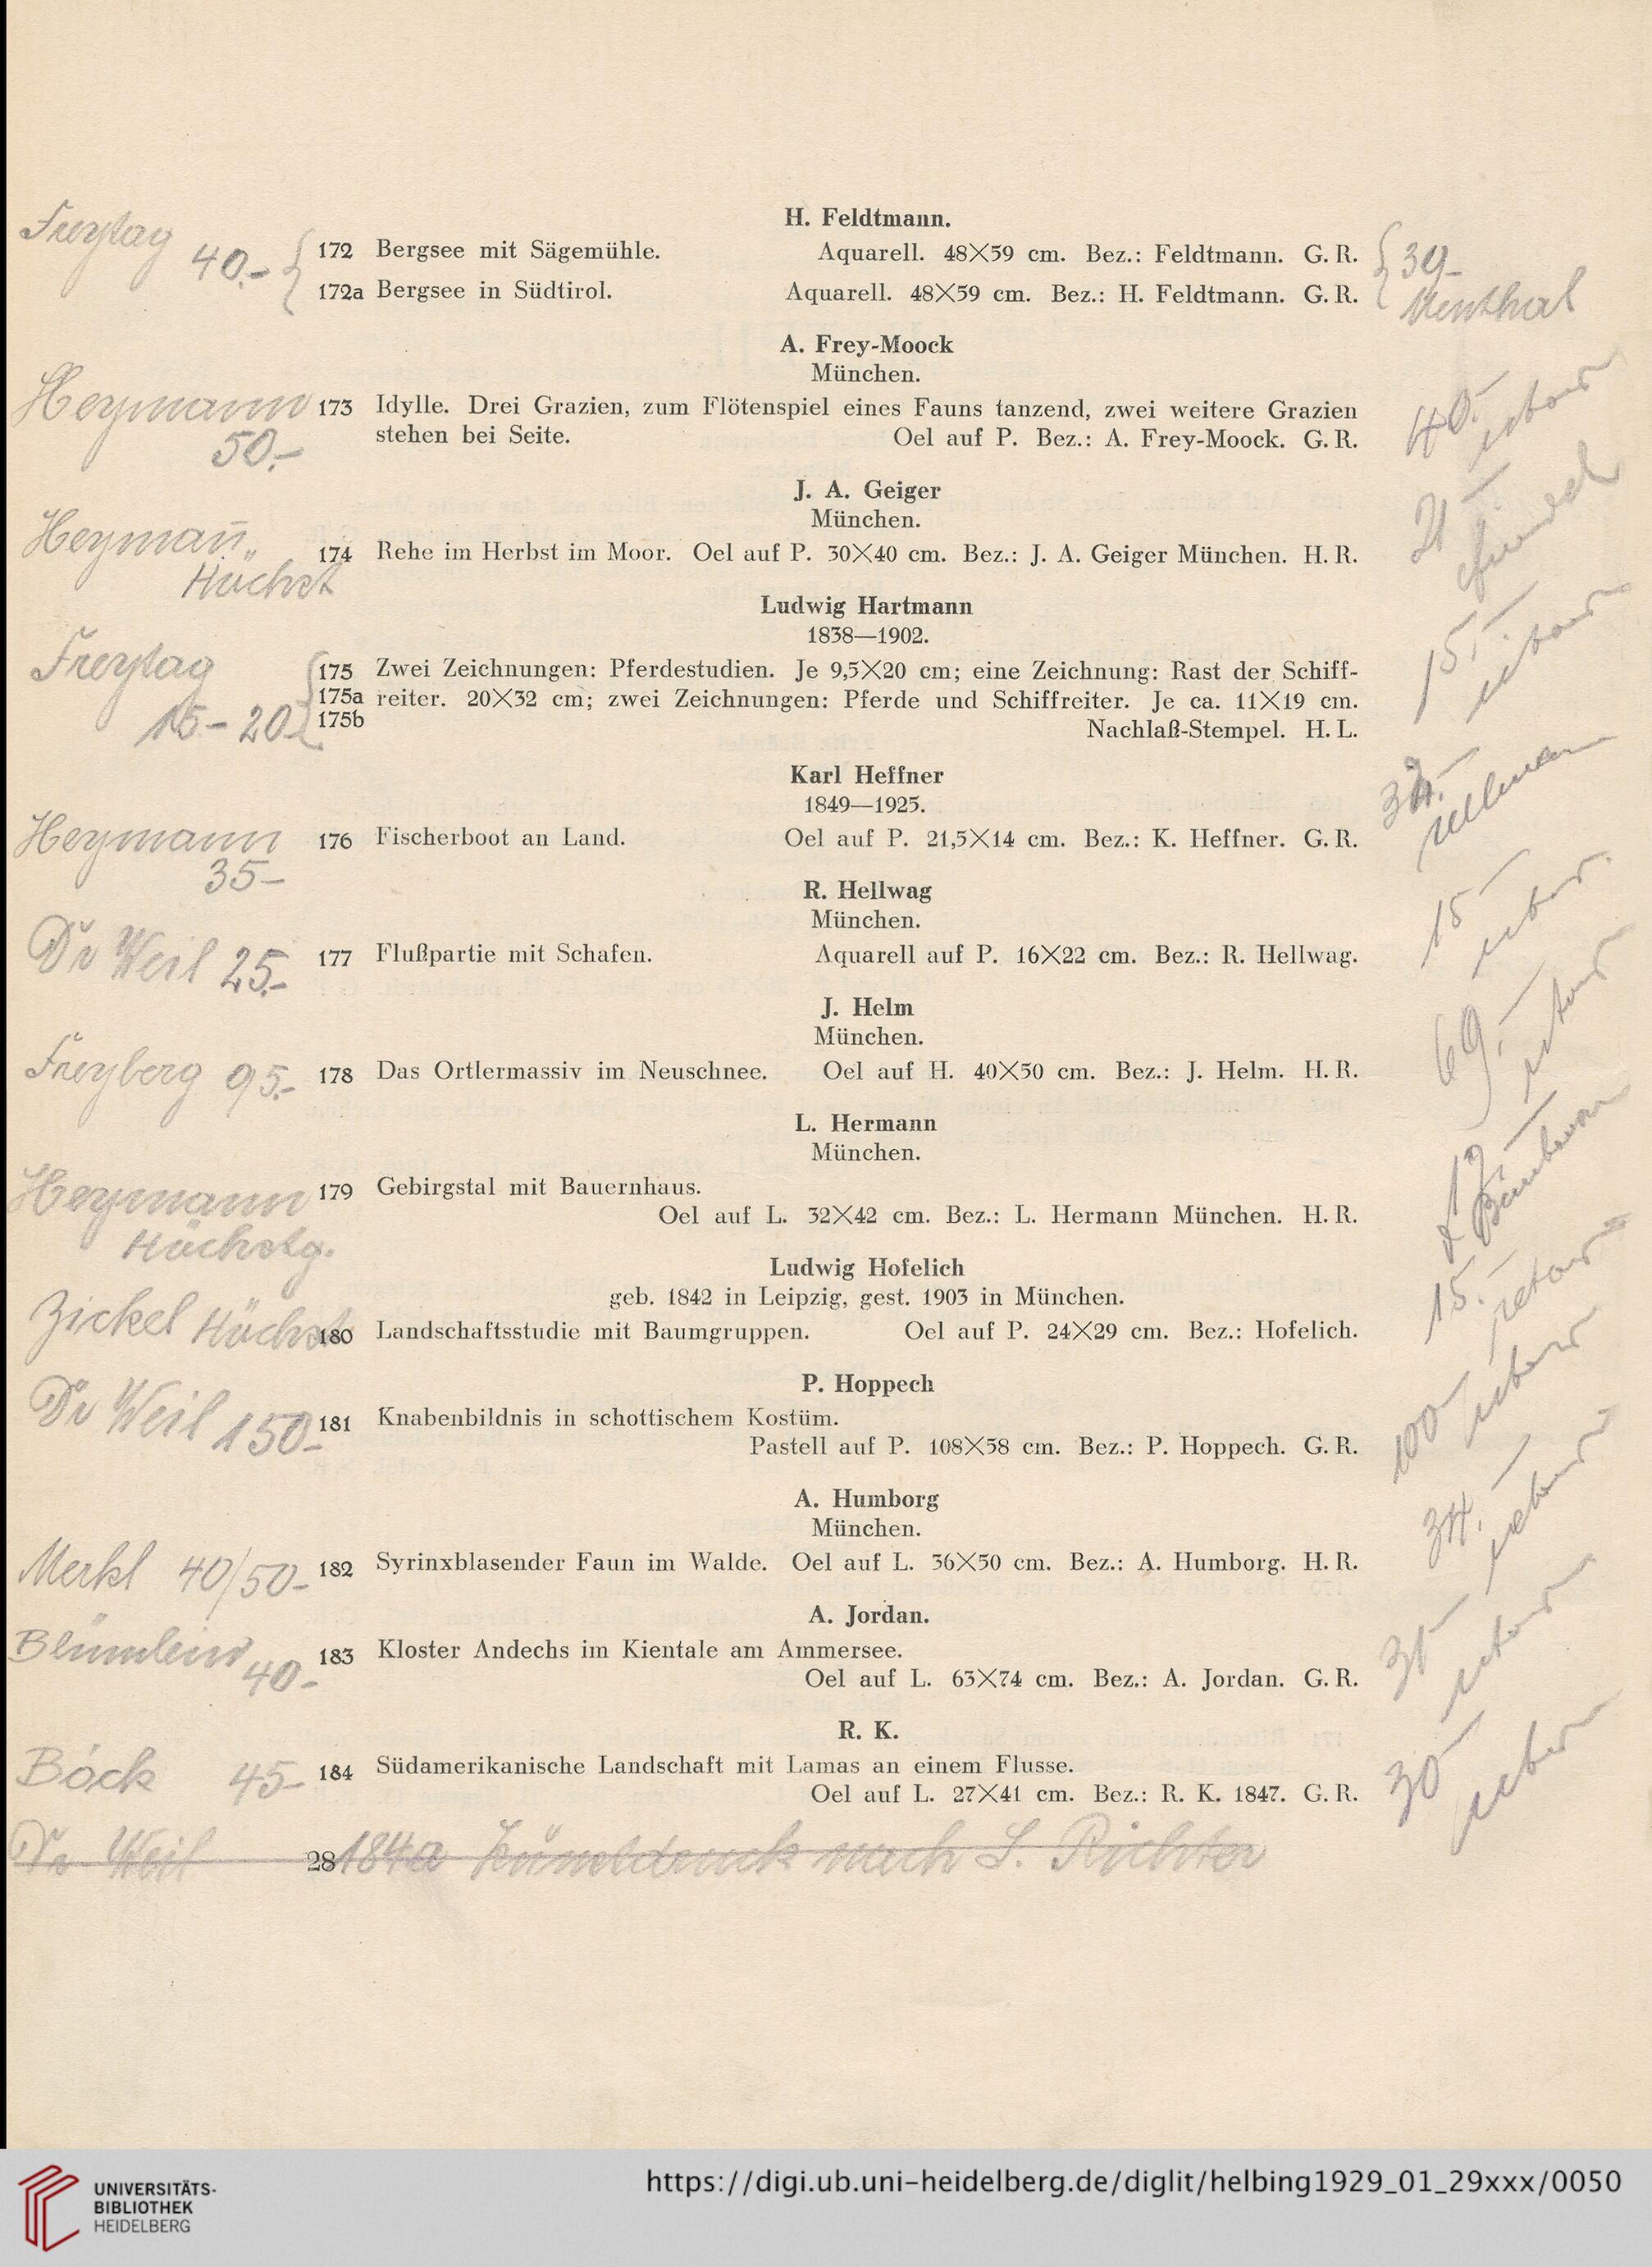 H. Feldtmann.
Freytag 40.- 172 Bergsee mit Sägemühle. Aquarell. 48×59 cm. Bez.: Feldtmann. G. R. 39-
172a Bergsee in Südtirol. Aquarell. 48×59 cm. Bez.: H. Feldtmann. G. R.
A. Frey-Moock
München.
Heymann 173 Idylle. Drei Grazien, zum Flötenspiel eines Fauns tanzend, zwei weitere Grazien 40.- retour
50.- stehen bei Seite. Oel auf P. Bez.: A. Frey-Moock. G. R.
J. A. Geiger
München.
Heyman̄ 174 Rehe im Herbst im Moor. Oel auf P. 30×40 cm. Bez.: J. A. Geiger München. H. R. 21-
Höchst
Ludwig Hartmann
1838—1902.
Freytag 175 Zwei Zeichnungen: Pferdestudien. Je 9,5×20 cm; eine Zeichnung: Rast der Schiff- 15.- retour
175a reiter. 20×32 cm; zwei Zeichnungen: Pferde und Schiffreiter. Je ca. 11×19 cm.
15.- 20 175b
Nachlaß-Stempel. H. L.
Karl Heffner
1849—1925.
Heymann 176 Fischerboot an Land. Oel auf P. 21,5×14 cm. Bez.: K. Heffner. G. R.
35-
R. Hellwag
München.
Dr Weil 25.- 177 Flußpartie mit Schafen. Aquarell auf P. 16×22 cm. Bez.: R. Hellwag. 15- retour
J. Helm
München.
Freyberg 95.- 178 Das Ortlermassiv im Neuschnee. Oel auf H. 40×50 cm. Bez.: J. Helm. H. R. 69.- retour
L. Hermann
München.
Heymann 179 Gebirgstal mit Bauernhaus.
Höchstg. Oel auf L. 32×42 cm. Bez.: L. Hermann München. H. R.
Ludwig Hofelich
geb. 1842 in Leipzig, gest. 1903 in München.
Zickel Höchst 180 Landschaftsstudie mit Baumgruppen. Oel auf P. 24×29 cm. Bez.: Hofelich. 15.- retour
P. Hoppech
Dr Weil 150- 181 Knabenbildnis in schottischem Kostüm.
Pastell auf P. 108×58 cm. Bez.: P. Hoppech. G. R. 100- retour
A. Humborg
München.
Merkl 40/50- 182 Syrinxblasender Faun im Walde. Oel auf L. 36×50 cm. Bez.: A. Humborg. H. R. 34.- retour
A. Jordan.
Blümlein 40- 183 Kloster Andechs im Kientale am Ammersee.
Oel auf L. 63×74 cm. Bez.: A. Jordan. G. R. 31- retour
R. K.
Böck 45- 184 Südamerikanische Landschaft mit Lamas an einem Flusse.
Oel auf L. 27×41 cm. Bez.: R. K. 1847. G. R. 30- retour
Dr Weil 28 184a nach L. Richter
UNIVERSITÄTS-
BIBLIOTHEK
HEIDELBERG
https://digi.ub.uni-heidelberg.de/diglit/helbing1929_01_29xxx/0050